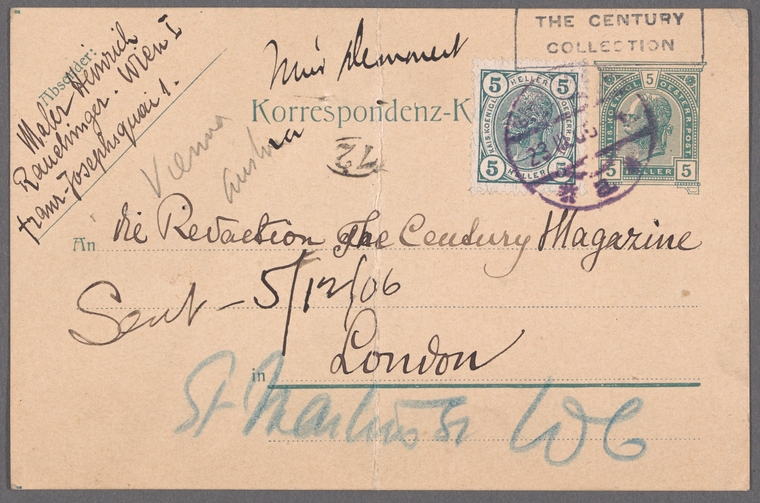 THE CENTURY
COLLECTION
Absender:
Maler Heinrich
Rauchinger. Wien I
Franz-Josephsquai 1.
Korrespondenz-K
5 HELLER 5
KAIS. KOENIGL. OESTERR.
5 5
5
KAIS. KOENIGL. OESTERR. POST
5 HELLER 5
72
Vienna
Austria
An die Redaction The Century Magazine
Sent - 5/12/06
in London
St Martins St WC